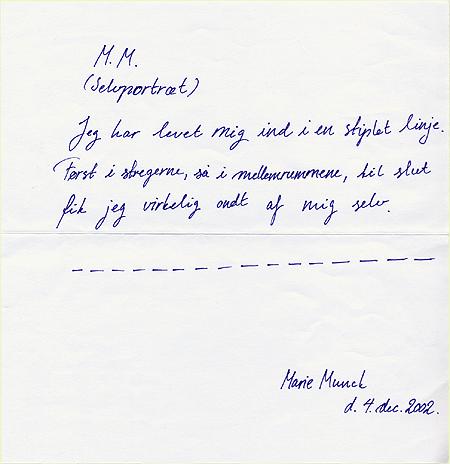 M. M.
(Selvportræt)
Jeg har levet mig ind i en stiplet linje.
Først i stregerne, så i mellemrummene, til slut
fik jeg virkelig ondt af mig selv.
Marie Munck
d. 4. dec. 2002.